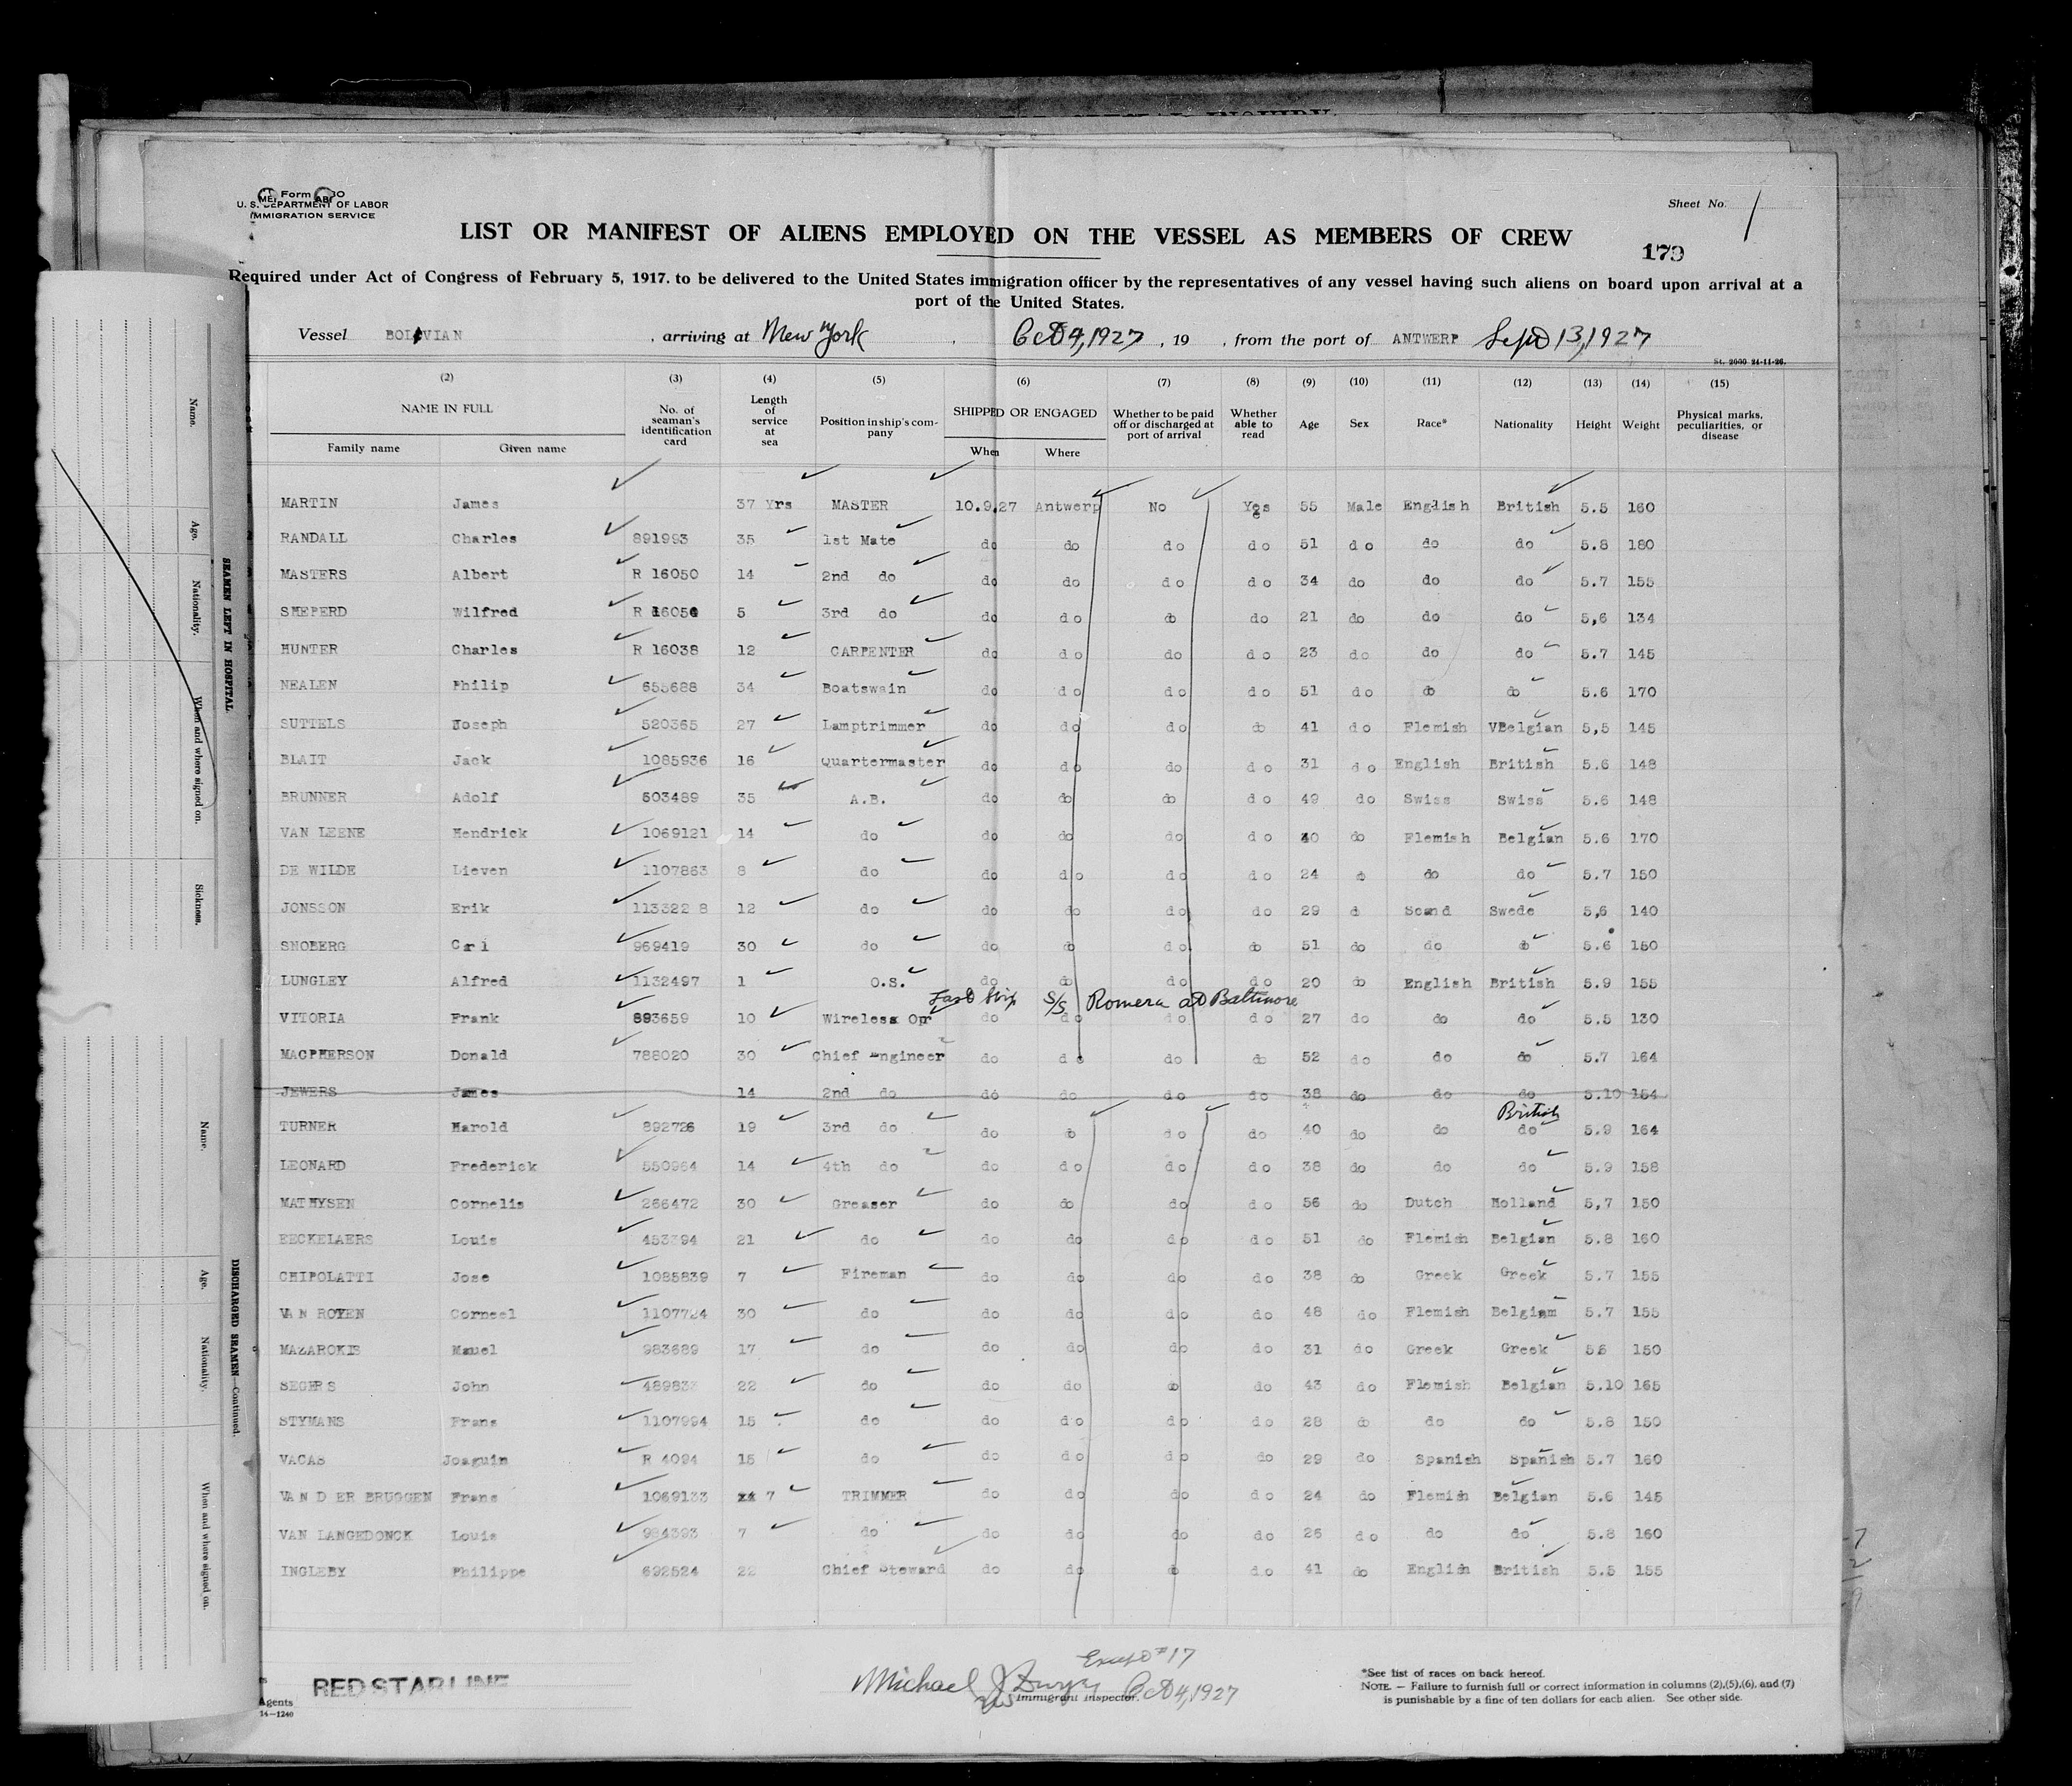 Form
U. S. DEPARTMENT OF LABOR
IMMIGRATION SERVICE
Sheet No. 1
LIST OR MANIFEST OF ALIENS EMPLOYED ON THE VESSEL AS MEMBERS OF CREW
179
Required under Act of Congress of February 5, 1917. to be delivered to the United States immigration officer by the representatives of any vessel having such aliens on board upon arrival at a
port of the United States.
Vessel BOLIVIAN , arriving at New York , Oct 4, 1927 , 19 , from the port of ANTWERP Sept 13, 1927
St. 2000 24-11-26.
(2) (3) (4) (5) (6) (7) (8) (9) (10) (11) (12) (13) (14) (15)
NAME IN FULL No. of seaman's identification card Length of service at sea Position in ship's company SHIPPED OR ENGAGED Whether to be paid off or discharged at port of arrival Whether able to read Age Sex Race* Nationality Height Weight Physical marks, peculiarities, or disease
Family name Given name When Where
MARTIN James 37 Yrs MASTER 10.9.27 Antwerp No Yes 55 Male English British 5.5 160
RANDALL Charles 891993 35 1st Mate do do do do 51 do do do 5.8 180
MASTERS Albert R 16050 14 2nd do do do do do 34 do do do 5.7 155
SHEPERD Wilfred R 16050 5 3rd do do do do do 21 do do do 5,6 134
HUNTER Charles R 16038 12 CARPENTER do do do do 23 do do do 5.7 145
NEALEN Philip 655688 34 Boatswain do do do do 51 do do do 5.6 170
SUTTELS Joseph 520365 27 Lamptrimmer do do do do 41 do Flemish VBelgian 5,5 145
BLAIT Jack 1085936 16 Quartermaster do do do do 31 do English British 5.6 148
BRUNNER Adolf 503489 35 A.B. do do do do 49 do Swiss Swiss 5.6 148
VAN LEENE Hendrick 1069121 14 do do do do do 40 do Flemish Belgian 5.6 170
DE WILDE Lieven 1107863 8 do do do do do 24 do do do 5.7 150
JONSSON Erik 113322 8 12 do do do do do 29 d Scand Swede 5,6 140
SNOBERG Carl 969419 30 do do do do do 51 do do do 5.6 150
LUNGLEY Alfred 1132497 1 O.S. do do do do 20 do English British 5.9 155
Last Ship S/S Romera at Baltimore
VITORIA Frank 893659 10 Wireless Opr do do do do 27 do do do 5.5 130
MACPHERSON Donald 788020 30 Chief Engineer do do do do 52 do do do 5.7 164
JEWERS James 14 2nd do do do do do 38 do do do 5.10 154
British
TURNER Harold 892726 19 3rd do do do do do 40 do do do 5.9 164
LEONARD Frederick 550964 14 4th do do do do do 38 do do do 5.9 158
MATHYSEN Cornelis 266472 30 Greaser do do do do 56 do Dutch Holland 5,7 150
EECKELAERS Louis 453394 21 do do do do do 51 do Flemish Belgian 5.8 160
CHIPOLATTI Jose 1085839 7 Fireman do do do do 38 do Greek Greek 5.7 155
VAN ROYEN Corneel 1107724 30 do do do do do 48 do Flemish Belgian 5.7 155
MAZAROKIS Mauel 983689 17 do do do do do 31 do Greek Greek 56 150
SEGERS John 489833 22 do do do do do 43 do Flemish Belgian 5.10 165
STYMANS Frans 1107994 15 do do do do do 28 do do do 5.8 150
VACAS Joaguin R 4094 15 do do do do do 29 do Spanish Spanish 5.7 160
VAN D ER BRUGGEN Frans 1069133 7 TRIMMER do do do do 24 do Flemish Belgian 5.6 145
VAN LANGEDONCK Louis 984393 7 do do do do do 26 do do do 5.8 160
INGLEBY Philippe 692524 22 Chief Steward do do do do 41 do English British 5.5 155
Except #17
RED STAR LINE
Michael J Dwyer Oct 4, 1927
Immigrant Inspector.
Agents
14—1240
*See list of races on back hereof.
NOTE. — Failure to furnish full or correct information in columns (2),(5),(6), and (7)
is punishable by a fine of ten dollars for each alien. See other side.
SEAMEN LEFT IN HOSPITAL.
Name.
Age.
Nationality.
When and where signed on.
Sickness.
DISCHARGED SEAMEN—Continued.
Name.
Age.
Nationality.
When and where signed on.